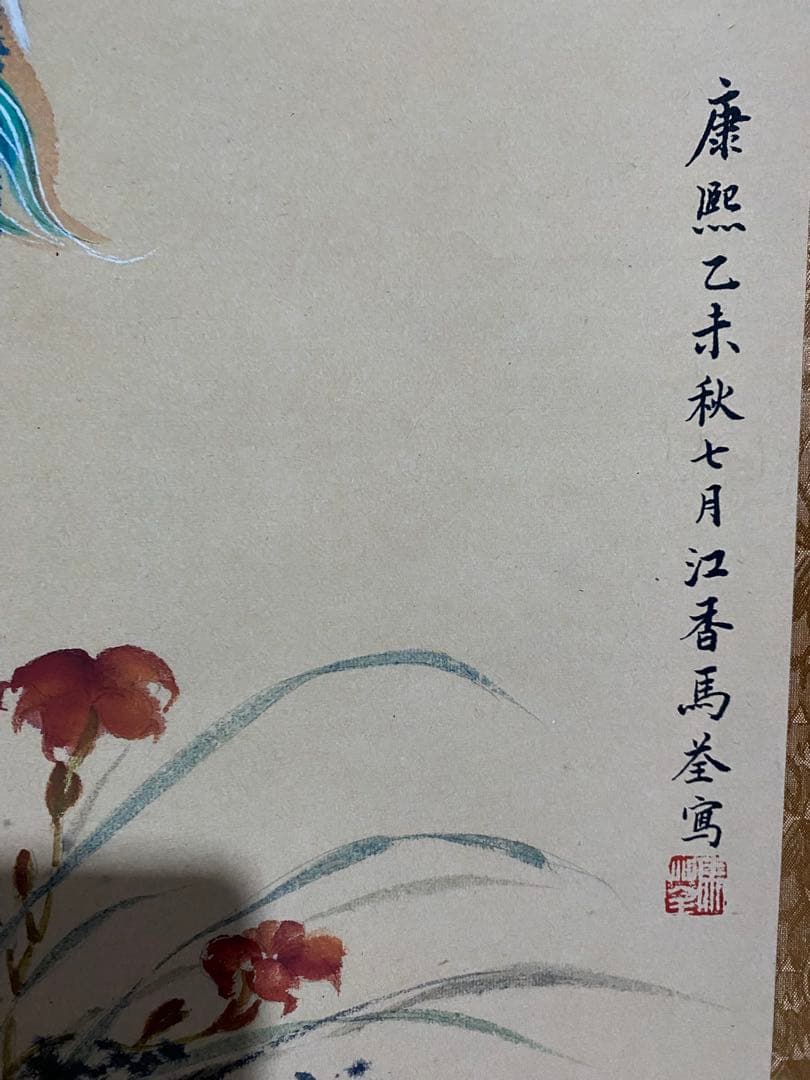 康熙乙未秋七月江香馬荃寫